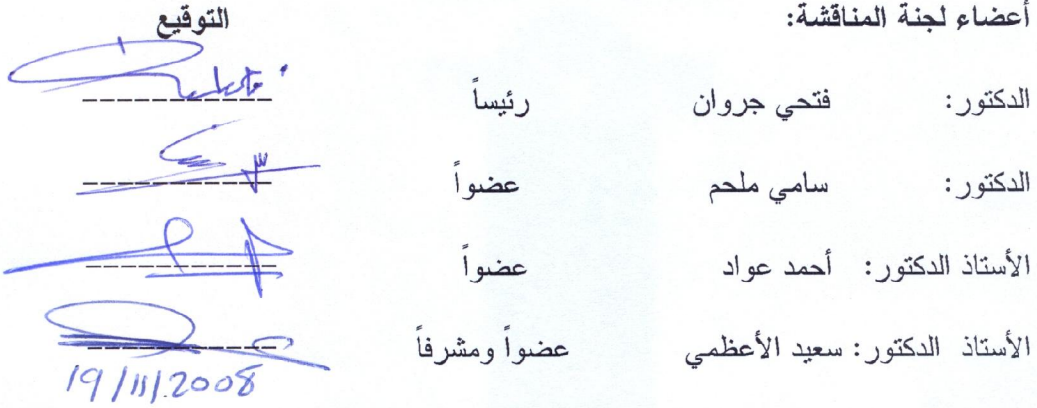 أعضاء لجنة المناقشة: التوقيع
الدكتور: فتحي جروان رئيساً
الدكتور: سامي ملحم عضواً
الأستاذ الدكتور: أحمد عواد عضواً
الأستاذ الدكتور: سعيد الأعظمي عضواً ومشرفاً
19/11/2008